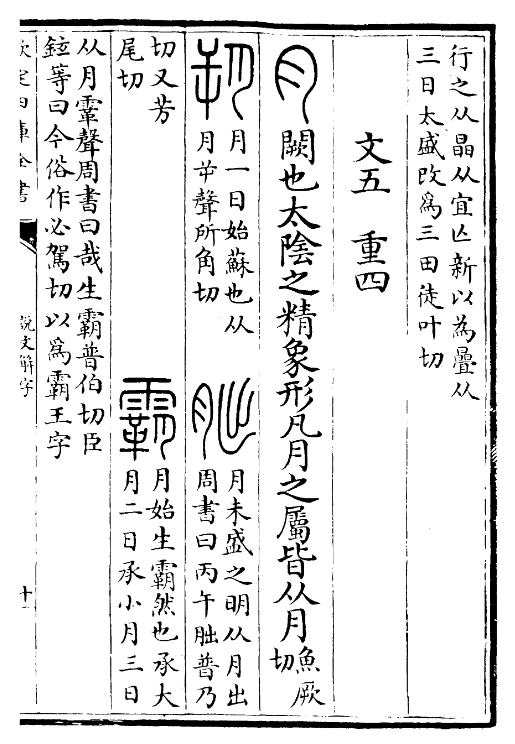 行之从晶从宜亡新以為疊从
三日太盛改爲三田徒叶切
文五　重四
月　闕也太陰之精象形凡月之屬皆从月魚厥切
朔　月一日始蘇也从
月屰聲所角切
朏　月未盛之明从月出
周書曰丙午朏普乃
切又芳
尾切
霸　月始生霸然也承大
月二日承小月三日
从月䨣聲周書曰哉生霸普伯切臣
鉉等曰今俗作必駕切以爲霸王字
欽定四庫全書
說文解字
十一